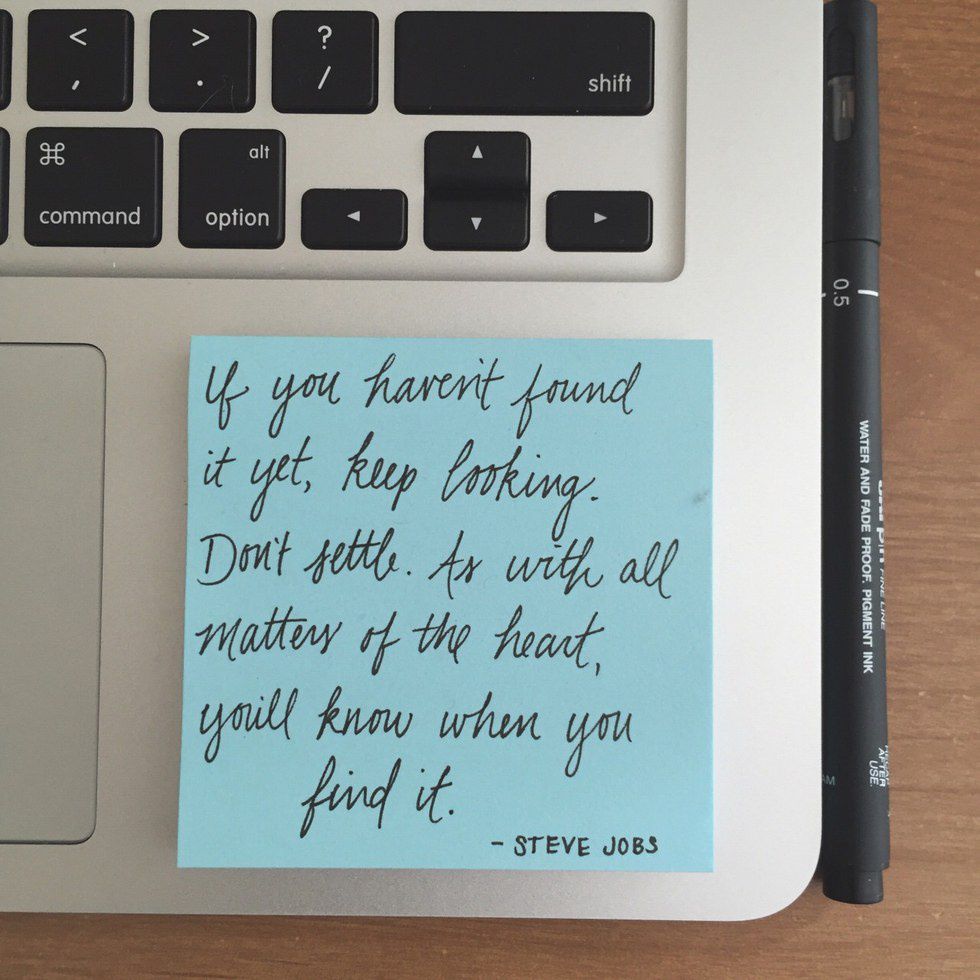 <
,
>
.
?
/
shift
⌘
command
alt
option
◄
▲
▼
►
If you haven't found
it yet, keep looking.
Don't settle. As with all
matters of the heart,
you'll know when you
find it.
- STEVE JOBS
0.5
FINE LINE
WATER AND FADE PROOF. PIGMENT INK
AFTER
USE.